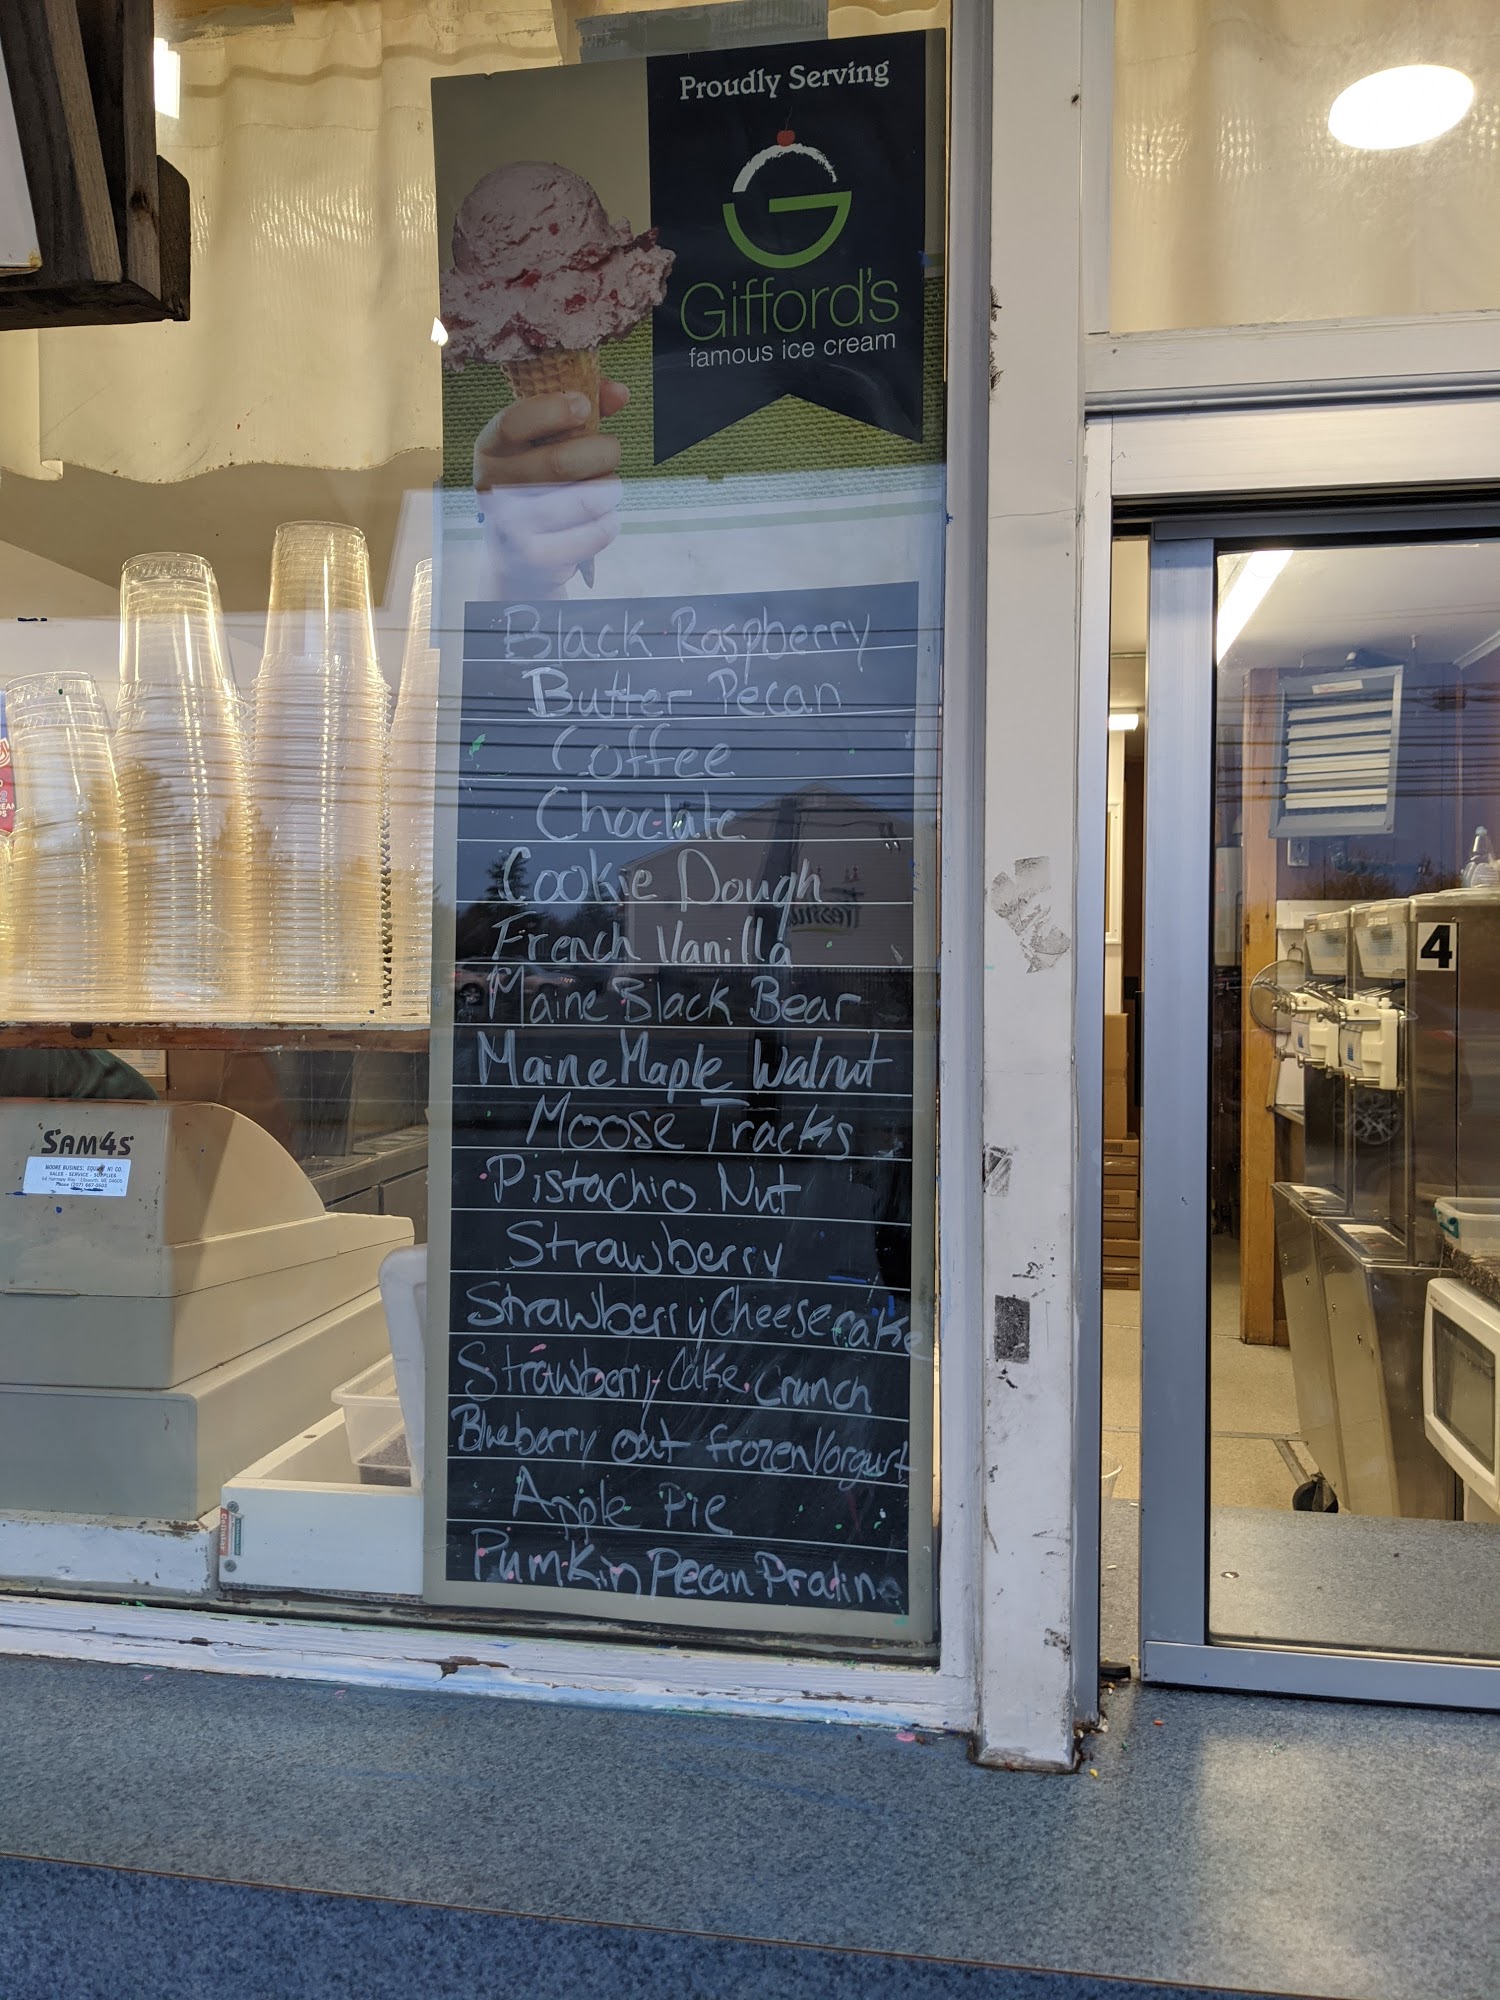 Proudly Serving
G
Gifford's
famous ice cream
Black Raspberry
Butter Pecan
Coffee
Choclate
Cookie Dough
French Vanilla
Maine Black Bear
Maine Maple Walnut
Moose Tracks
Pistachio Nut
Strawberry
Strawberry Cheesecake
Strawberry Cake Crunch
Blueberry oat frozen Yorgurt
Apple Pie
Pumkin Pecan Praline
SAM4S
MOORE BUSINESS EQUIPMENT CO.
SALES - SERVICE - SUPPLIES
4